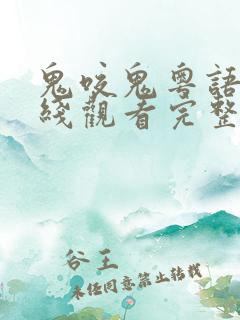 鬼咬鬼粵語
綫觀看完整
谷王
未經同意禁止轉載